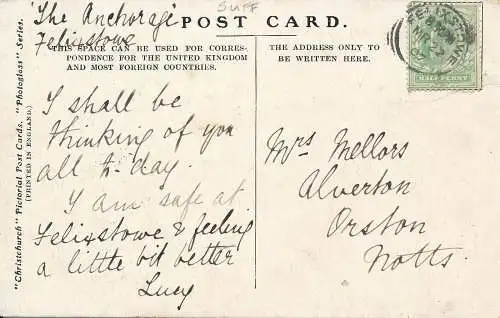 Suff
"The Anchorage
Felixstowe
POST CARD.
THIS SPACE CAN BE USED FOR CORRES-
PONDENCE FOR THE UNITED KINGDOM
AND MOST FOREIGN COUNTRIES.
THE ADDRESS ONLY TO
BE WRITTEN HERE.
I shall be
thinking of you
all to-day.
I am safe at
Felixstowe & feeling
a little bit better
Lucy
Mrs Mellors
Alverton
Orston
Notts.
FELIXSTOWE
HALF PENNY
"Christchurch" Pictorial Post Cards. "Photogloss" Series.
(PRINTED IN ENGLAND.)